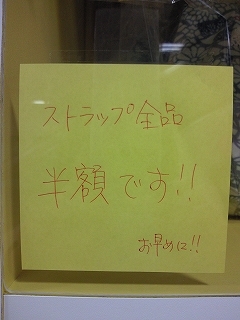 ストラップ全品
半額です!!
お早めに!!